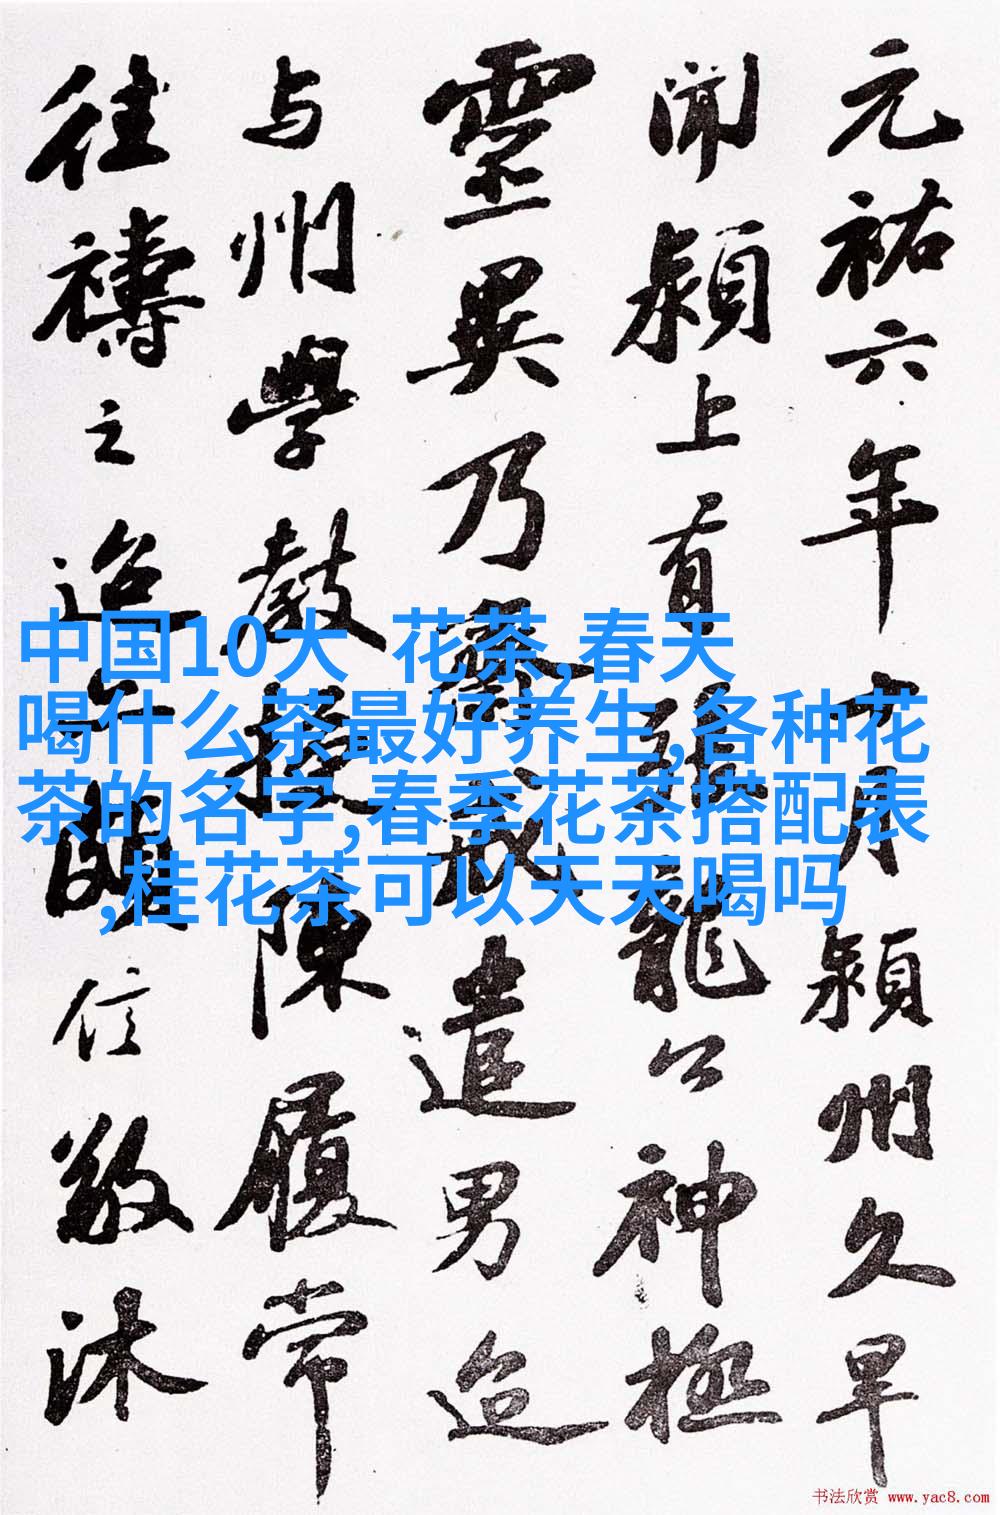 元祐六年十月潁州久旱
聞潁上有張龍公神極
靈異乃齋戒遣男迨
与州學教授陳履常
往禱之迨亦頗信敬沐
中国10大 花茶,春天
喝什么茶最好养生,各种花
茶的名字,春季花茶搭配表
,桂花茶可以天天喝吗
书法欣赏 www.yac8.com